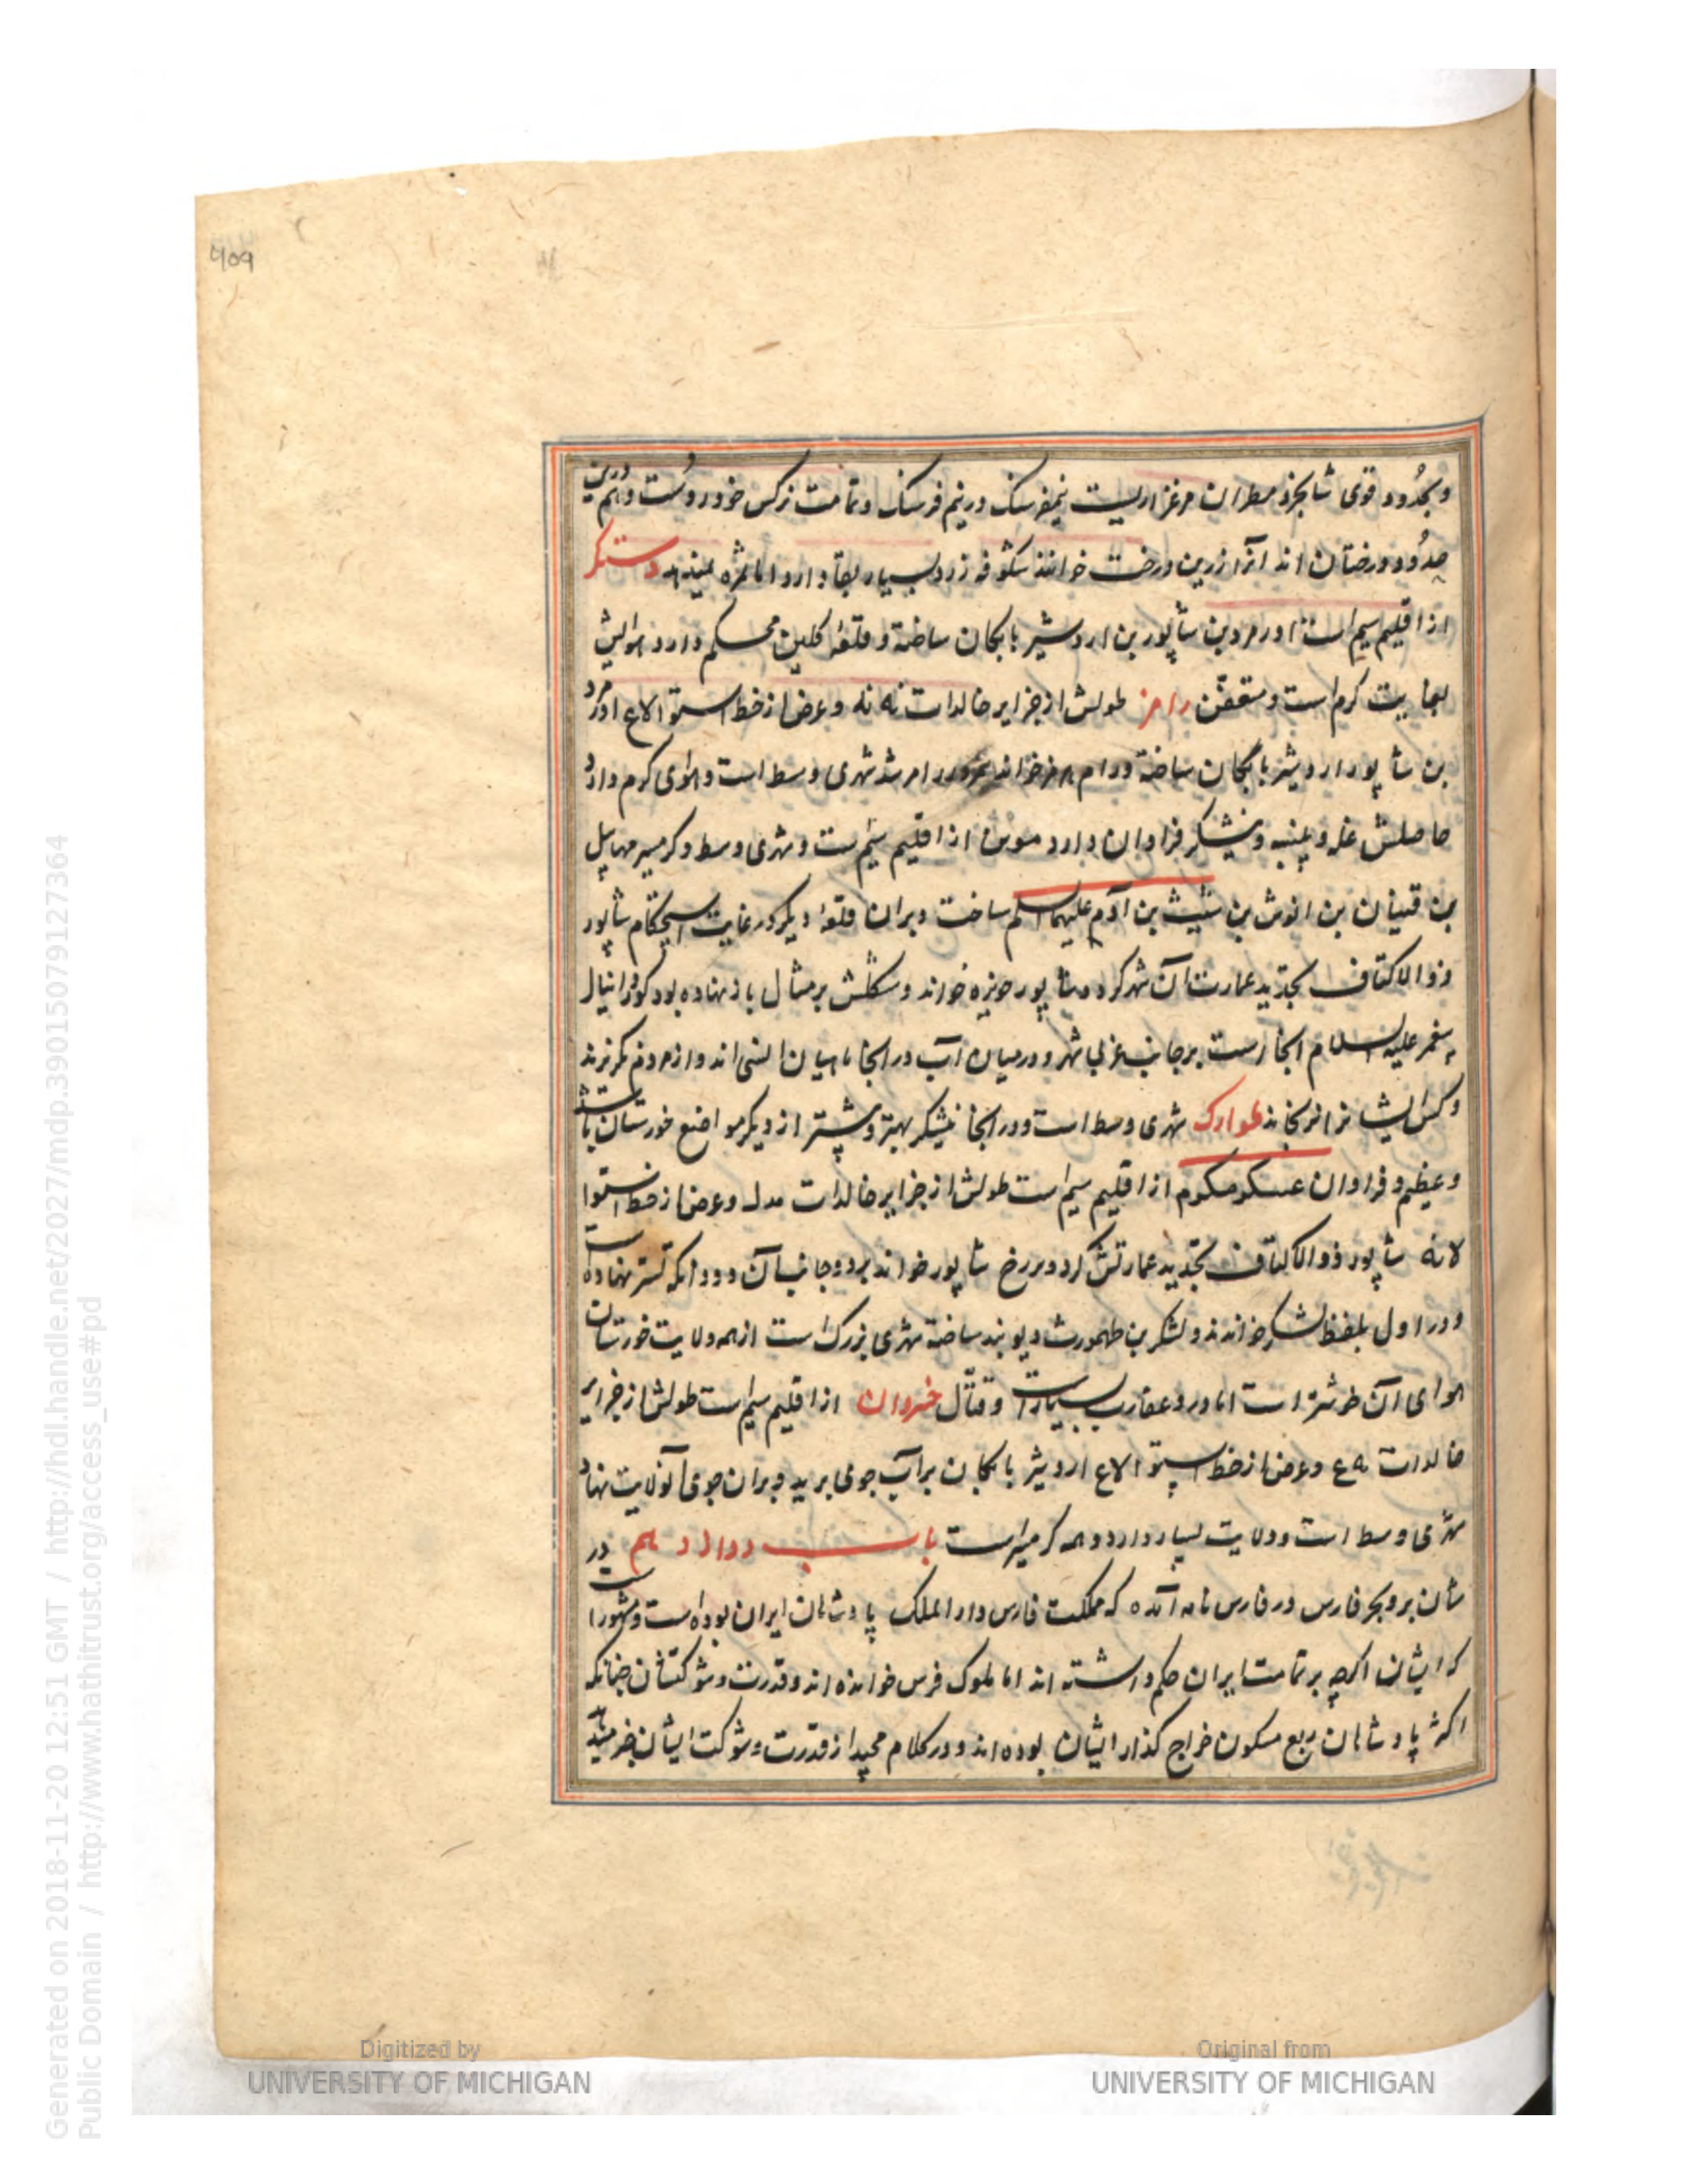 ۴۵۹
وبحدود قوی شابجرد مطران مرغزاریست نیمفرسنک در نیم فرسنک وتمامت نرکس خودروست وهم درین
حدود درختان اند آنرا زرین درخت خوانند شکوفه زرد بسیار بقا دارد اما ثمره نمیدهد دستکر
از اقلیم سیم است اورمردبن شاپور بن اردشیر بابکان ساخته و قلعه کلین محکم دارد هوایش
بغایت کرم است و متعفن رامز طولش از جزایر خالدات نه نه وعرض از خط استوا لاع اورمرد
بن شاپور اردشیر بابکان ساخته ورام هرمز خواند بمرور رامز شد شهری وسط است وهوای کرم دارد
حاصلش غله و پنبه و نیشکر فراوان دارد سوس از اقلیم سیم است و شهری وسط و کرمسیر مهاییل
بن قینان بن انوش بن شیث بن آدم علیهما السلم ساخت وبران قلعۀ دیکر در غایت استحکام شاپور
ذوالاکتاف بتجدید عمارت آن شهر کرد و شاپور حویزه خواند و شکلش بر مثال باز نهاده بود کور دانیال
پیغمبر علیه السلام آنجا است بر جانب غربی شهر و در میان آب در آنجا ماهیان انسی اند و از مردم نکریزند
وکس ایشانرا نرنجاند طوارک شهری وسط است ودر آنجا نیشکر بهتر و بیشتر از دیکر مواضع خورستان باشد
وعظیم و فراوان عسکر مکرم از اقلیم سیم است طولش از جزایر خالدات مدل وعرض از خط استوا
لانه شاپور ذوالاکتاف بتجدید عمارتش کرد و بررخ شاپور خواند بر دو جانب آن دودانکه تستر نهاده است
ودر اول بلفظ لشکر خواندند و لشکر بن طهمورث دیوبند ساخته شهری بزرک است از همه ولایت خورستان
هوای آن خوشتر است اما درو عقارب بسیارست و قتال خسروان از اقلیم سیم است طولش از جزایر
خالدات ه ع وعرض از خط استوا لاع اردشیر بابکان بر آب جوی برید و بران جوی آنولایت نهاد
شهری وسط است و ولایت بسیار دارد و همه کرمسیرست باب دوازدهم در
شان بر و بحر فارس در فارس نامه آمده که مملکت فارس دارالملک پادشاهان ایران بوده است و مشهور است
که ایشان اکرچه بر تمامت ایران حکم داشته اند اما ملوک فرس خوانده اند و قدرت و شوکتشان چنانکه
اکثر پادشاهان ربع مسکون خراج کذار ایشان بوده اند و در کلام مجید از قدرت و شوکت ایشان خبر میدهد
Generated on 2018-11-20 12:51 GMT / http://hdl.handle.net/2027/mdp.39015079127364
Public Domain / http://www.hathitrust.org/access_use#pd
Digitized by
UNIVERSITY OF MICHIGAN
Original from
UNIVERSITY OF MICHIGAN